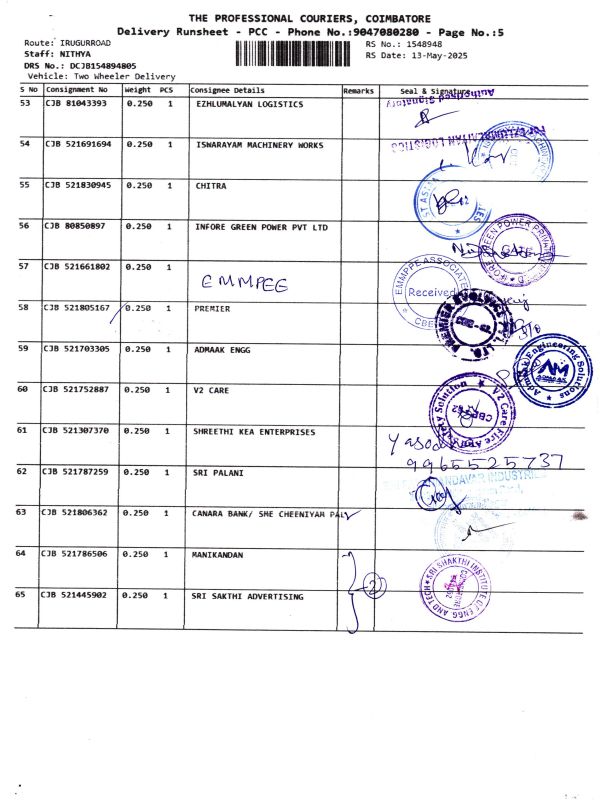 THE PROFESSIONAL COURIERS, COIMBATORE
Delivery Runsheet - PCC - Phone No.:9047080280 - Page No.:5
Route: IRUGURROAD
Staff: NITHYA
DRS No.: DCJB154894805
Vehicle: Two Wheeler Delivery
RS No.: 1548948
RS Date: 13-May-2025
S No Consignment No Weight PCS Consignee Details Remarks Seal & Signature
53 CJB 81043393 0.250 1 EZHLUMALYAN LOGISTICS
Authorised Signatory
54 CJB 521691694 0.250 1 ISWARAYAM MACHINERY WORKS
55 CJB 521830945 0.250 1 CHITRA
56 CJB 80850897 0.250 1 INFORE GREEN POWER PVT LTD
GATE
57 CJB 521661802 0.250 1 EMMPEE
EMMPPE ASSOCIATE
Received
CBE
58 CJB 521805167 0.250 1 PREMIER
59 CJB 521703305 0.250 1 ADMAAK ENGG
Admaak Engineering Solutions
60 CJB 521752887 0.250 1 V2 CARE
V2 Care Fire And Safety Solution
61 CJB 521307370 0.250 1 SHREETHI KEA ENTERPRISES
Yasoda
9965525737
62 CJB 521787259 0.250 1 SRI PALANI
INDUSTRIES
63 CJB 521806362 0.250 1 CANARA BANK/ SME CHEENIYAM PAL
64 CJB 521786506 0.250 1 MANIKANDAN
2
65 CJB 521445902 0.250 1 SRI SAKTHI ADVERTISING
SRI SHAKTHI INSTITUTE OF ENGG. AND TECH